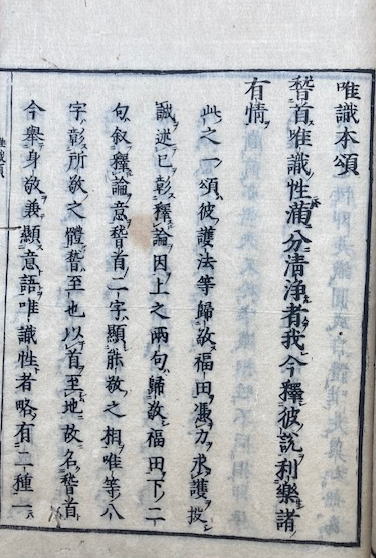 唯識本頌
稽首唯識性滿分清淨者我今釋彼說利樂諸
有情
此之一頌彼護法等歸敬福田憑力求護投
誠述已彰釋論因上之兩句歸敬福田下二
句叙釋論意稽首二字顯能敬之相唯等八
字彰所敬之體稽至也以首至地故名稽首
今舉身敬兼顯意語唯識性者略有二種一